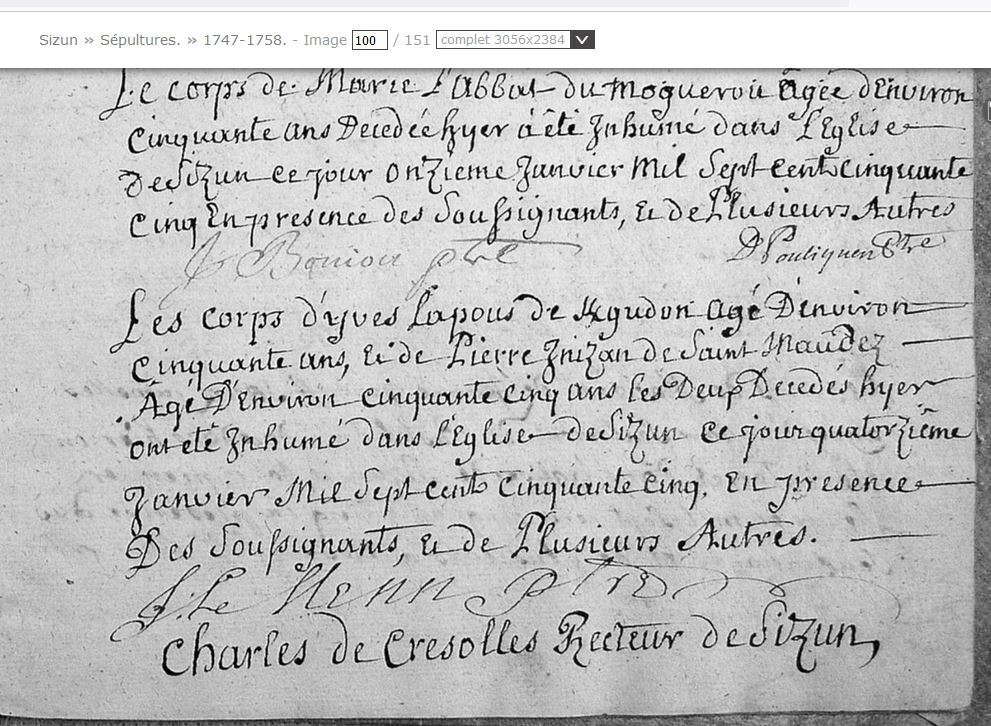 Sizun » Sépultures. » 1747-1758. - Image 100 / 151 complet 3056x2384
Le corps de Marie L'Abbat du Mogueroü Âgée d'Environ
cinquante ans Decedée hyer â été Jnhumé dans L'Eglise
de Sizun ce jour onzieme Janvier Mil Sept cent cinquante
cinq En presence des Soussignants, & de Plusieurs Autres
J Ptre D Pouliquen Ptre
Les corps d'yves Lapous de Kgudon agé D'environ
cinquante ans, & de Pierre Jnizan de Saint Maudez
Âgé D'Environ cinquante cinq ans les Deux Decedés hyer
ont eté Jnhumé dans L'Eglise de Sizun ce jour quatorziême
Janvier Mil Sept cent cinquante cinq. En presence
Des Soussignants, & de Plusieurs Autres.
J: Le Henn ptre
Charles de Cresolles Recteur de Sizun,